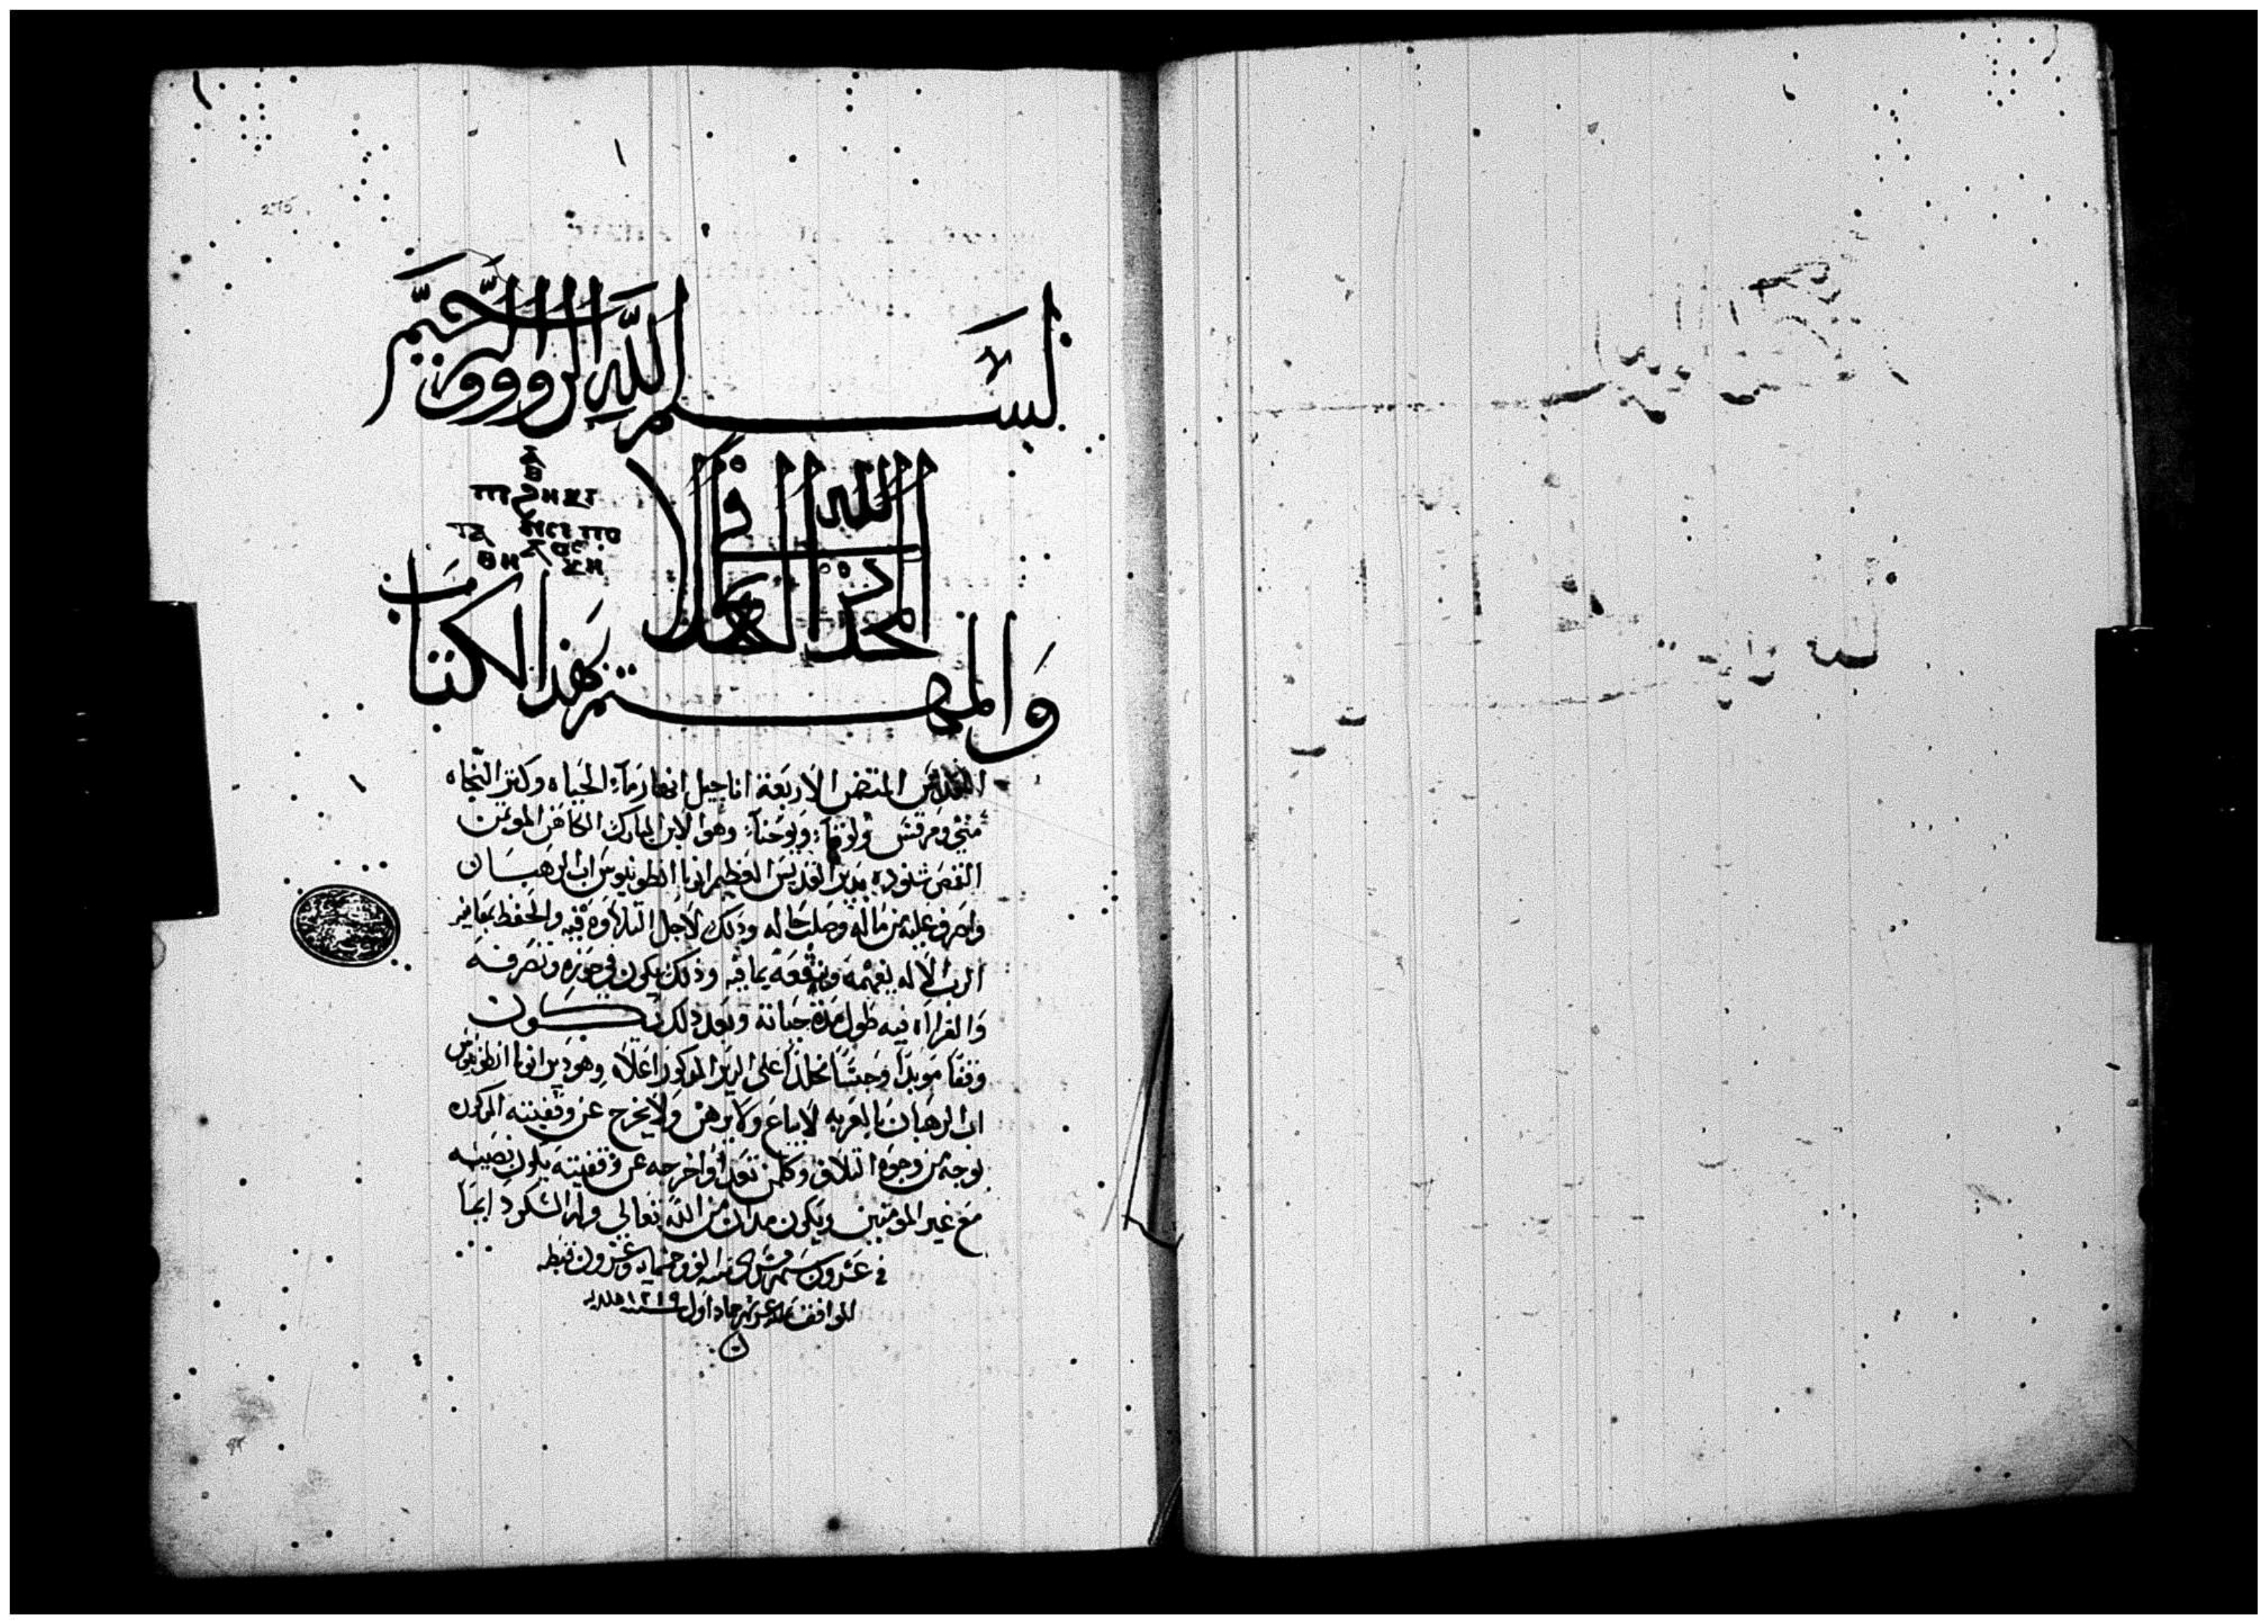 ١
بسم الله الرووف الرحيم
المجد لله في العلا
والمهتم بهذا الكتاب
المقدس المتضمن الاربعة اناجيل انهار ماء الحياه وكنز النجاه
متي ومرقس ولوقا ويوحنا وهو الابن المبارك الكاهن الموتمن
القص شنوده بدير القديس العظيم انبا انطونيوس اب الرهبان
واصرف عليه من ماله وصلب حاله وذلك لاجل التلاوه فيه والحفظ بمعانيه
الرب الاله يفهمه وينفعه بما فيه وذلك يكون في حوزه وتصرفه
والقراه فيه طول مدة حياته وبعد ذلك يكون
وقفا موبدا وحبسا مخلدا علي الدير المذكور اعلاه وهو دير انبا انطونيوس
اب الرهبان بالعربه لا يباع ولا يرهن ولا يخرج عن وقفيته المذكوره
بوجه من وجوه التلاف وكلمن تعدا واخرجه عن وقفيته يكون نصيبه
مع غير المومنين ويكون مدان من الله تعالي وله الشكر دايما
في عشرون شهر مسرى سنه الف وخمسمايه وعشرون قبطيه
الموافق جماد اول سنة ١٢١٩ هلاليه